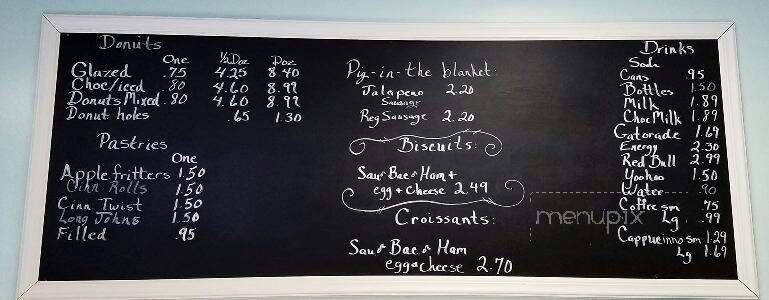 Donuts
One ½Doz Doz
Glazed .75 4.25 8.40
Choc/iced .80 4.60 8.99
Donuts Mixed .80 4.60 8.99
Donut holes .65 1.30
Pastries
One
Apple fritters 1.50
Cinn Rolls 1.50
Cinn Twist 1.50
Long Johns 1.50
Filled .95
Pig-in-the blanket
Jalapeno 2.20
Sausage
Reg Sausage 2.20
Biscuits:
Sau or Bac or Ham +
egg + cheese 2.49
Croissants:
Sau or Bac or Ham
egg & cheese 2.70
Drinks
Soda
Cans .95
Bottles 1.50
Milk 1.89
Choc Milk 1.89
Gatorade 1.69
Energy 2.30
Red Bull 2.99
Yoohoo 1.50
Water .90
Coffee sm .75
Lg .99
Cappucinno sm 1.29
Lg 1.69
menupix